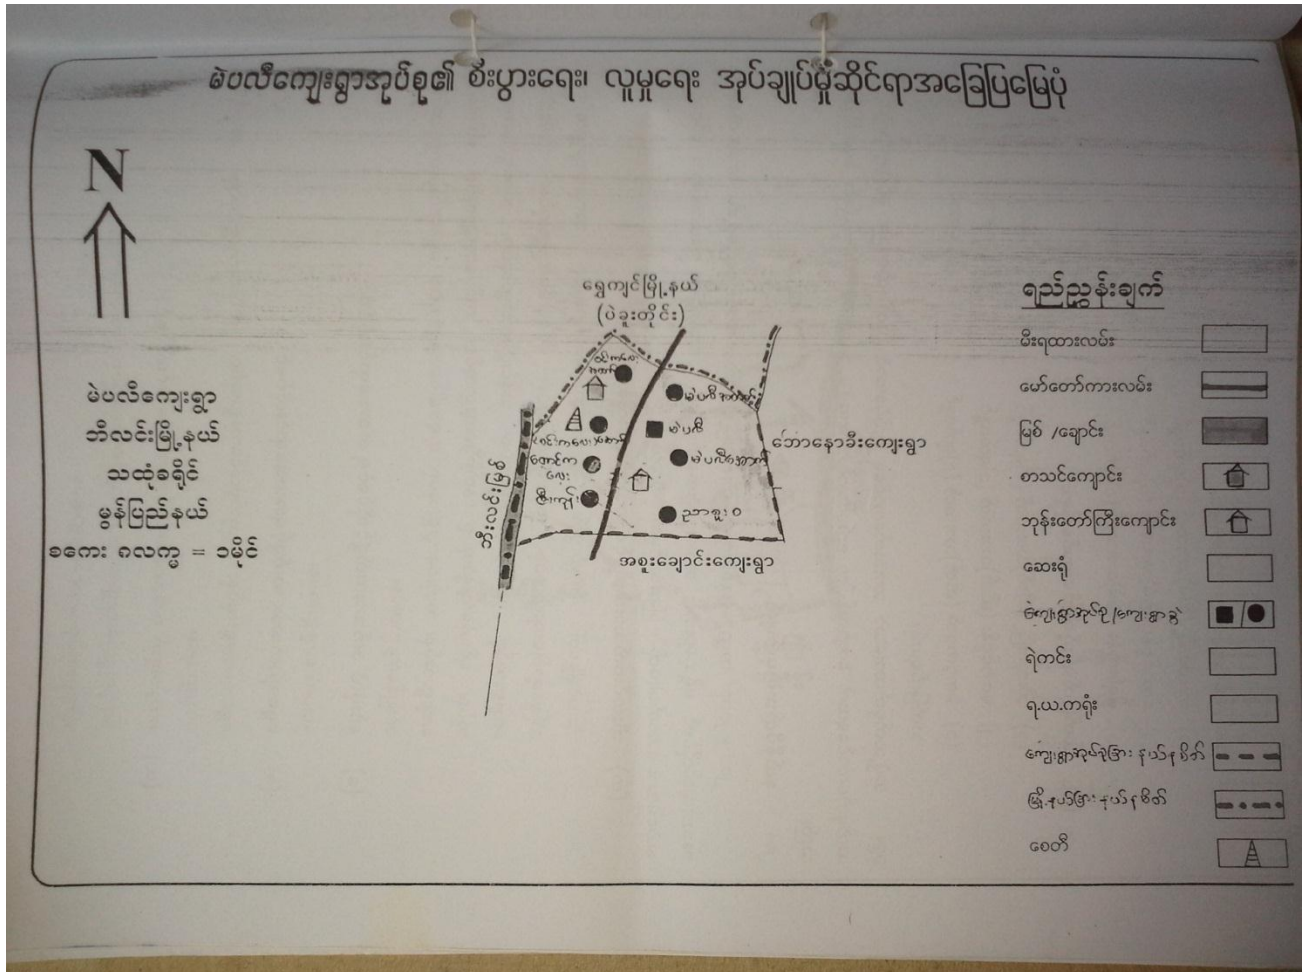 မဲပလီကျေးရွာအုပ်စု၏ စီးပွားရေး၊ လူမှုရေး အုပ်ချုပ်မှုဆိုင်ရာအခြေပြမြေပုံ
N
မဲပလီကျေးရွာ
ဘီလင်းမြို့နယ်
သထုံခရိုင်
မွန်ပြည်နယ်
စကေး ၈လက္မ = ၁မိုင်
ရွှေကျင်မြို့နယ်
(ပဲခူးတိုင်း)
မဲပလီ
ဘောနောခီးကျေးရွာ
မဲပလီအောက်
ဘီးလင်းမြစ်
အစူးချောင်းကျေးရွာ
ရည်ညွှန်းချက်
မီးရထားလမ်း
မော်တော်ကားလမ်း
မြစ် /ချောင်း
စာသင်ကျောင်း
ဘုန်းတော်ကြီးကျောင်း
ဆေးရုံ
ကျေးရွာအုပ်စု/ကျေးရွာ
ရဲကင်း
ရ.ယ.ကရုံး
ကျေးရွာအုပ်စုခြား နယ်နမိတ်
မြို့နယ်ခြားနယ်နမိတ်
စေတီ